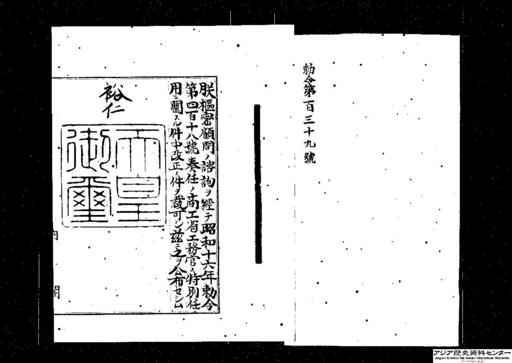 勅令第百三十九號
朕樞密顧問ノ諮詢ヲ經テ昭和十六年勅令
第四百十八號奏任ノ商工省工務官ノ特別任
用ニ關スル件中改正ノ件ヲ裁可シ茲ニ之ヲ公布セシム
裕仁
天皇
御璽
内閣
アジア歴史資料センター
Japan Center for Asian Historical Records